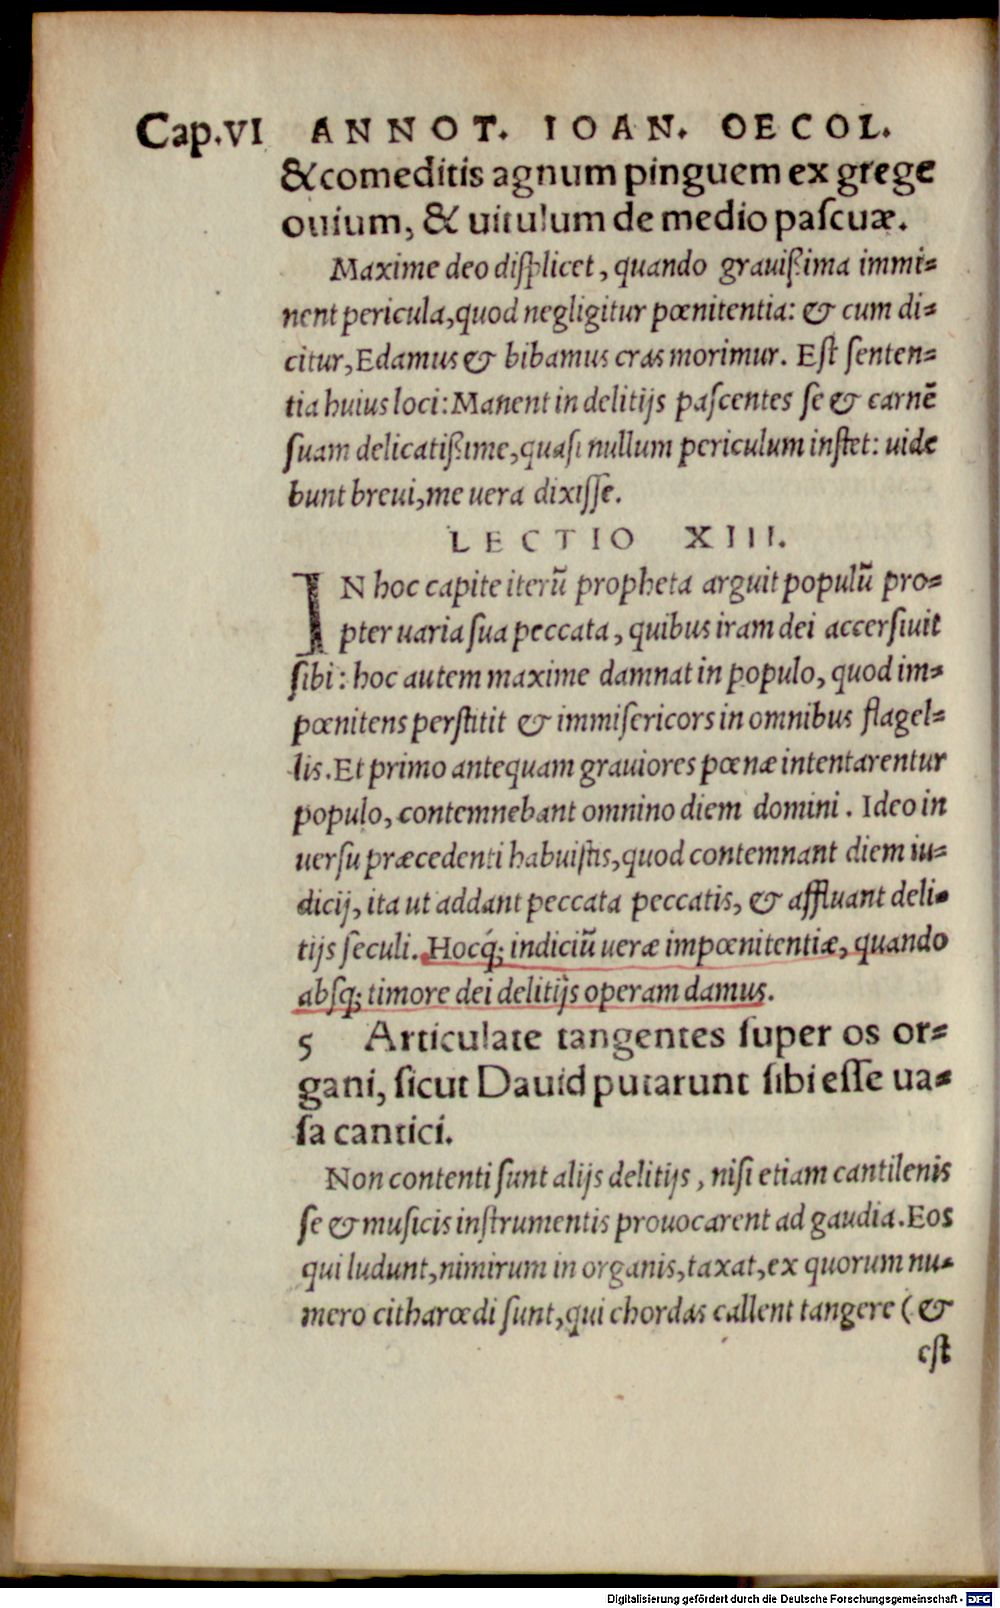 Cap.VI ANNOT. IOAN. OECOL.
& comeditis agnum pinguem ex grege
ouium, & uitulum de medio pascuæ.
Maxime deo displicet, quando grauißima immi-
nent pericula, quod negligitur pœnitentia: & cum di-
citur, Edamus & bibamus cras morimur. Est senten-
tia huius loci: Manent in delitijs pascentes se & carnē
suam delicatißime, quasi nullum periculum instet: uide
bunt breui, me uera dixisse.
LECTIO XIII.
IN hoc capite iterū propheta arguit populū pro-
pter uaria sua peccata, quibus iram dei accersiuit
sibi: hoc autem maxime damnat in populo, quod im-
pœnitens perstitit & immisericors in omnibus flagel-
lis. Et primo antequam grauiores pœnæ intentarentur
populo, contemnebant omnino diem domini. Ideo in
uersu præcedenti habuistis, quod contemnant diem iu-
dicij, ita ut addant peccata peccatis, & affluant deli-
tijs seculi. Hocq́; indiciū ueræ impœnitentiæ, quando
absq; timore dei delitijs operam damus.
5 Articulate tangentes super os or-
gani, sicut Dauid putarunt sibi esse ua-
sa cantici.
Non contenti sunt alijs delitijs, nisi etiam cantilenis
se & musicis instrumentis prouocarent ad gaudia. Eos
qui ludunt, nimirum in organis, taxat, ex quorum nu-
mero citharœdi sunt, qui chordas callent tangere (&
est
Digitalisierung gefördert durch die Deutsche Forschungsgemeinschaft - DFG